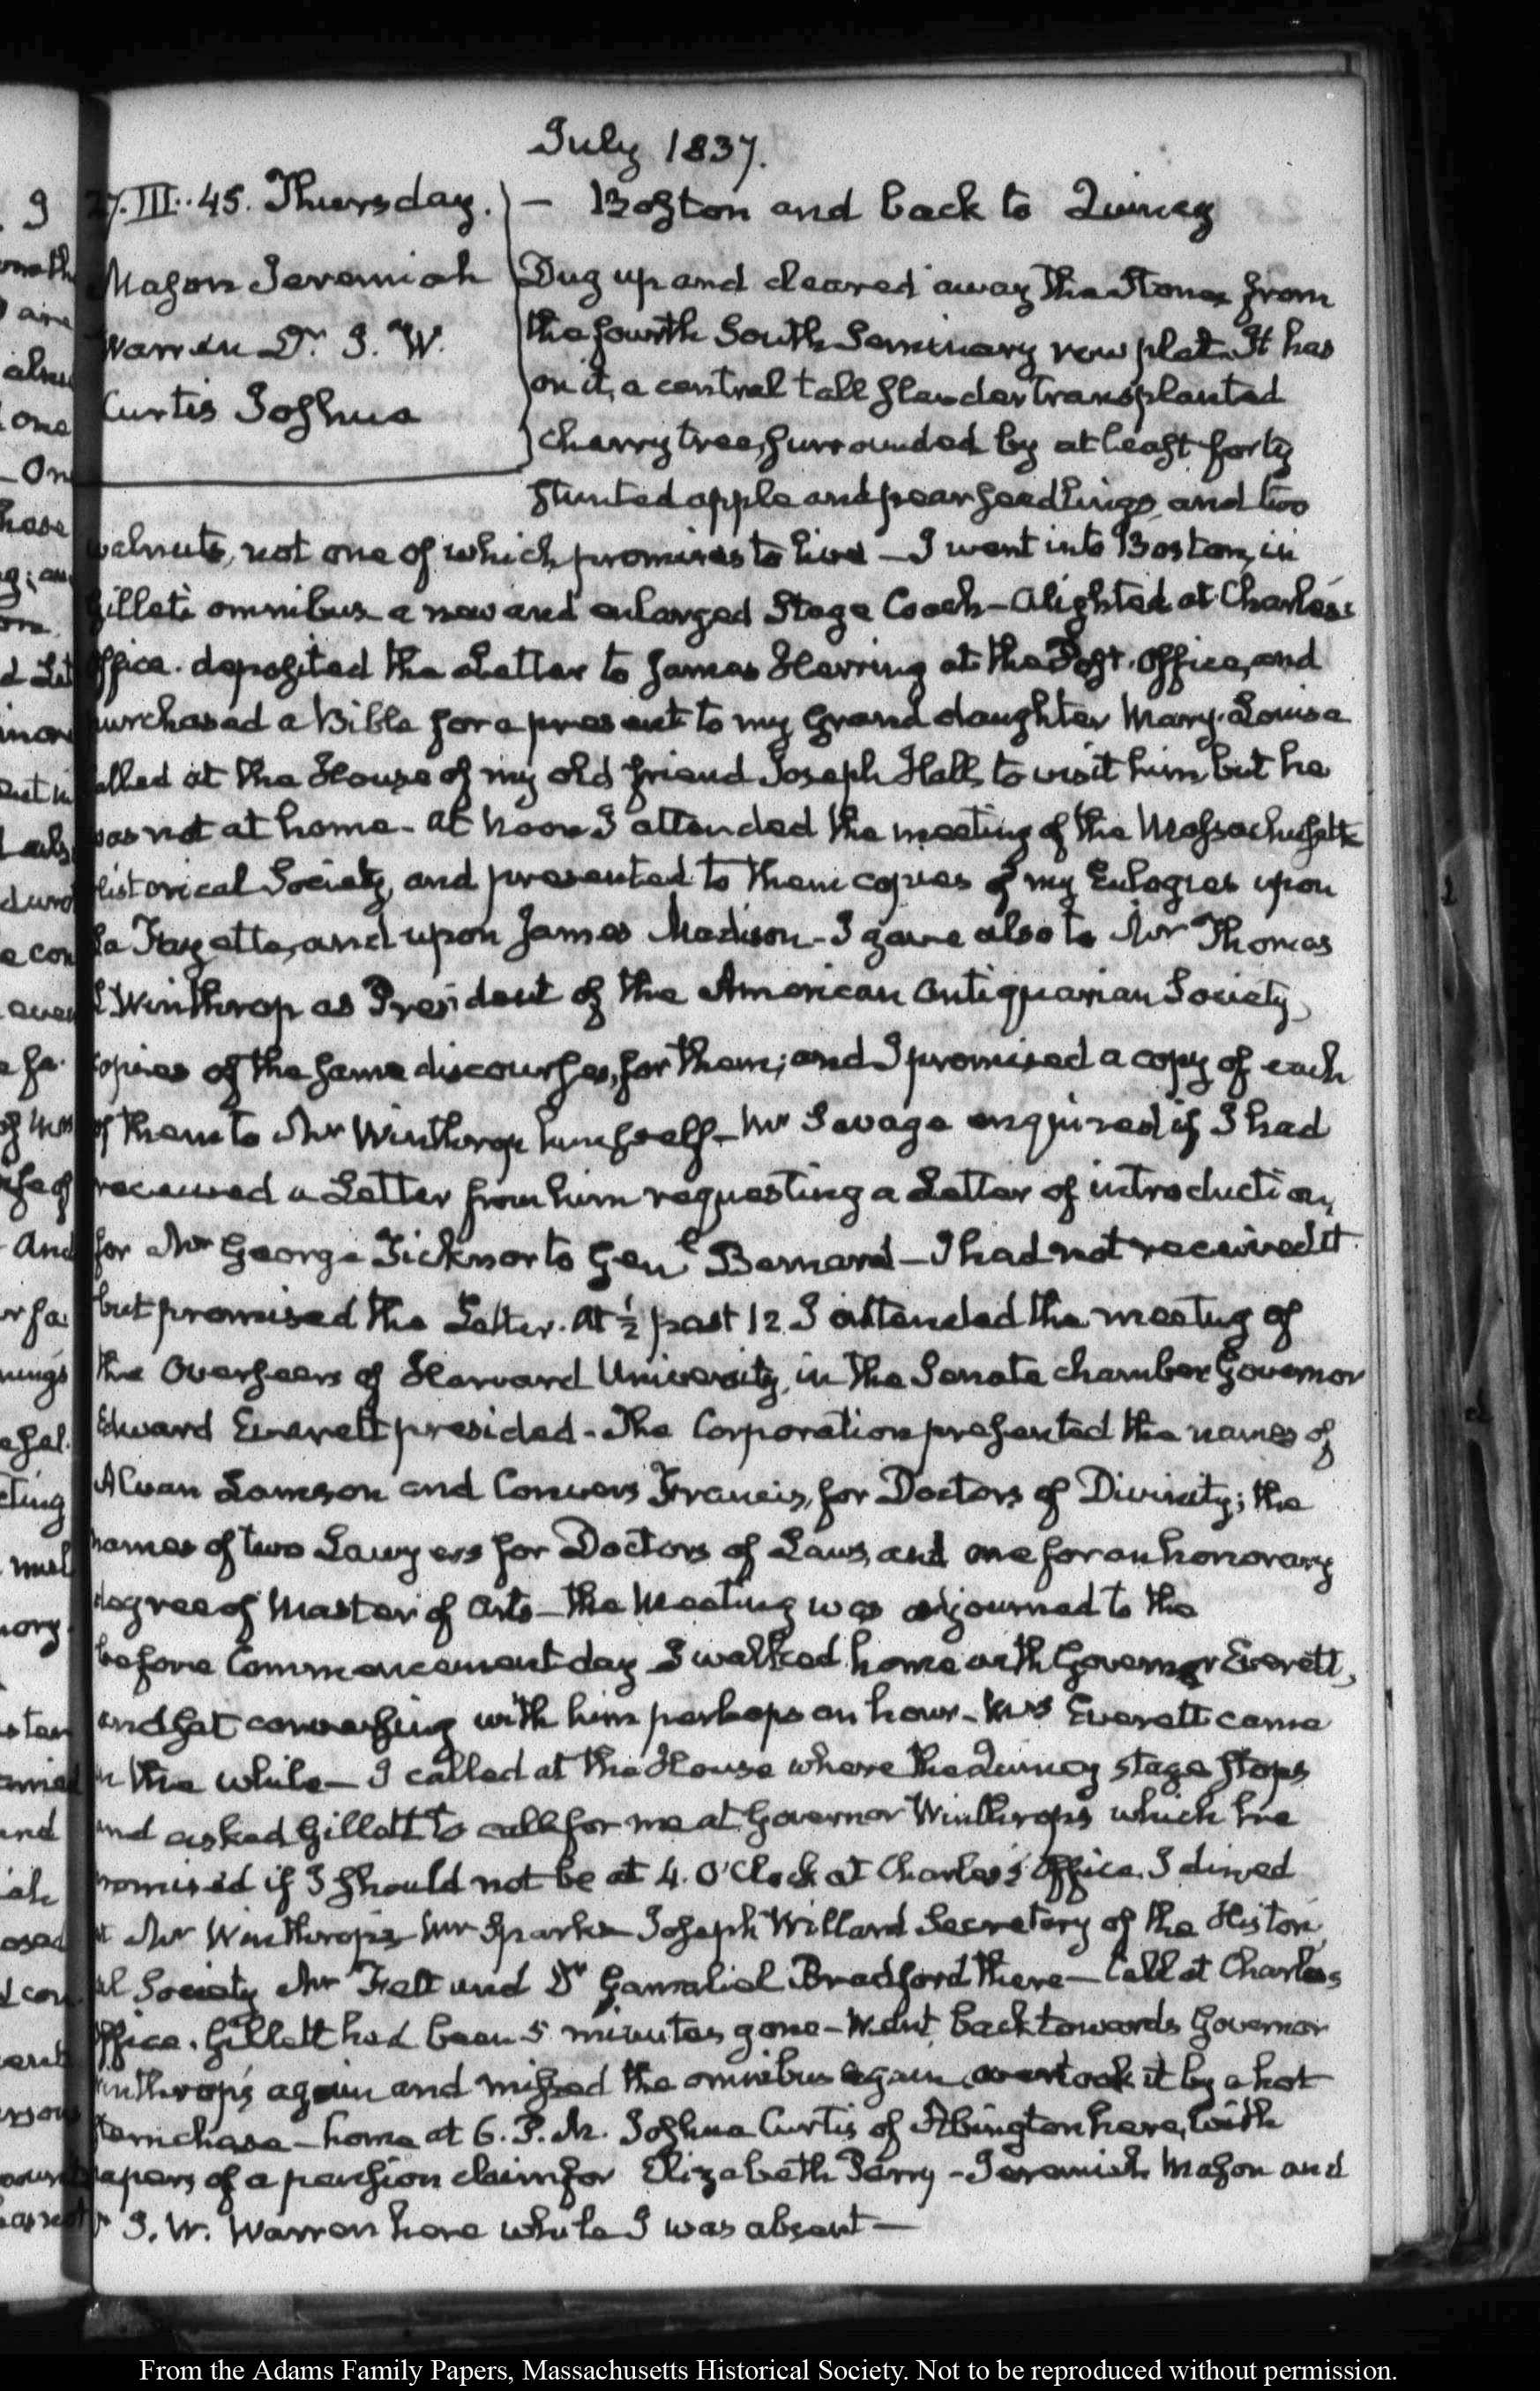 July 1837.
27. III..45. Thursday. — Boston and back to Quincy
Mason Jeremiah
Warren Dr. J. W.
Curtis Joshua
Dug up and cleared away the Stones from
the fourth South Seminary row plat. It has
on it, a central tall slender transplanted
cherry tree, surrounded by at least forty
stunted apple and pear seedlings, and two
walnuts, not one of which promises to live — I went into Boston, in
Gillett's omnibus a new and enlarged Stage Coach — Alighted at Charles's
Office. deposited the Letter to James Herring at the Post-Office, and
purchased a Bible for a present to my Grand daughter Mary-Louisa
called at the House of my old friend Joseph Hall, to visit him but he
was not at home — at noon I attended the meeting of the Massachusetts
Historical Society, and presented to them copies of my Eulogies upon
La Fayette, and upon James Madison — I gave also to Mr Thomas
L Winthrop as President of the American Antiquarian Society,
copies of the same discourses, for them; and I promised a copy of each
of them to Mr Winthrop himself — Mr Savage enquired if I had
received a Letter from him requesting a Letter of introduction,
for Mr George Ticknor to Genl Bernard — I had not received it
but promised the Letter. At ½ past 12 I attended the meeting of
the Overseers of Harvard University, in the Senate chamber Governor
Edward Everett presided — The Corporation presented the names of
Alvan Lamson and Convers Francis, for Doctors of Divinity; the
names of two Lawyers for Doctors of Laws, and one for an honorary
degree of Master of Arts — the Meeting was adjourned to the
before Commencement day I walked home with Governor Everett,
and sat conversing with him perhaps an hour — Mrs Everett came
in the while — I called at the House where the Quincy stage stops
and asked Gillett to call for me at Governor Winthrop's which he
promised if I should not be at 4. O'Clock at Charles's Office. I dined
at Mr Winthrop's Mr Sparks Joseph Willard Secretary of the Histori
cal Society Mr Felt and Dr Gamaliel Bradford there — Call at Charles's
Office. Gillett had been 5 minutes gone — Went back towards Governor
Winthrop's again and missed the omnibus again, overtook it by a hot
stern chase — home at 6. P.M. Joshua Curtis of Abington here, with
papers of a pension claim for Elizabeth Perry — Jeremiah Mason and
Dr J. W. Warren here while I was absent —
From the Adams Family Papers, Massachusetts Historical Society. Not to be reproduced without permission.